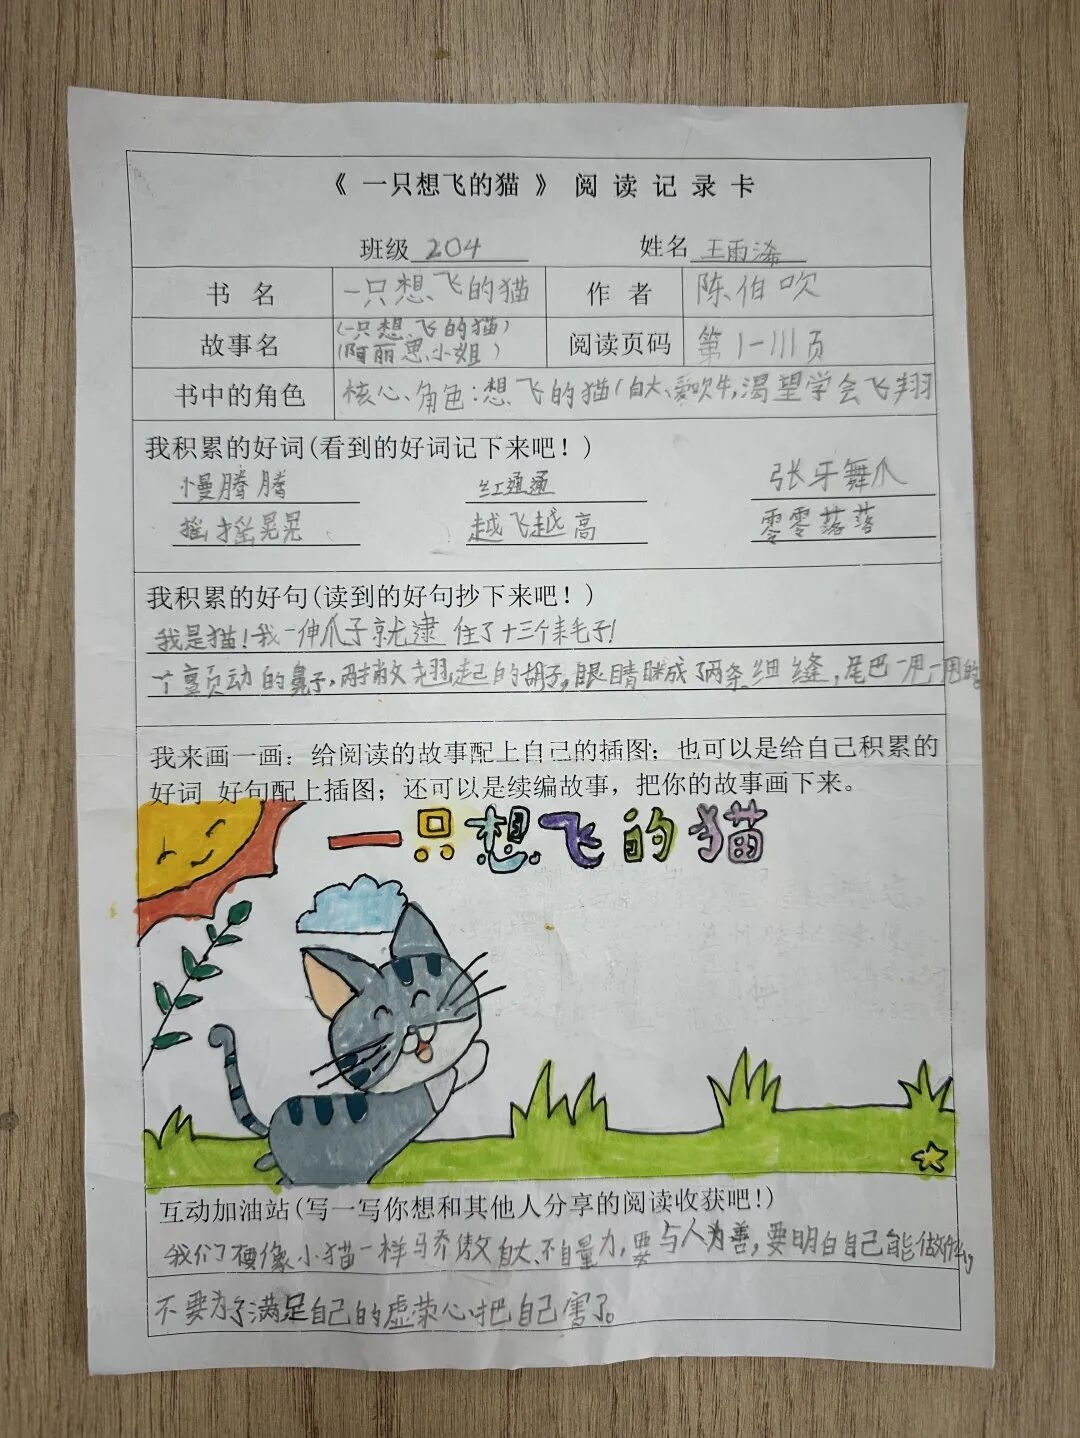 《 一只想飞的猫 》 阅 读 记 录 卡
班级 204 姓名 王雨浠
书 名 一只想飞的猫 作 者 陈伯吹
故事名 (一只想飞的猫) (阿丽思小姐) 阅读页码 第1-111页
书中的角色 核心角色:想飞的猫(自大、爱吹牛,渴望学会飞翔
我积累的好词(看到的好词记下来吧!)
慢腾腾 红通通 张牙舞爪
摇摇晃晃 越飞越高 零零落落
我积累的好句(读到的好句抄下来吧!)
我是猫!我一伸爪子就逮住了十三个耗子!
个颤动的鼻子,两撇翘起的胡子,眼睛眯成了两条细缝,尾巴一甩一甩的
我来画一画:给阅读的故事配上自己的插图;也可以是给自己积累的
好词 好句配上插图;还可以是续编故事,把你的故事画下来。
一只想飞的猫
互动加油站(写一写你想和其他人分享的阅读收获吧!)
我们像小猫一样骄傲自大、不自量力,要与人为善,要明白自己能做什么,
不要为了满足自己的虚荣心把自己害了。